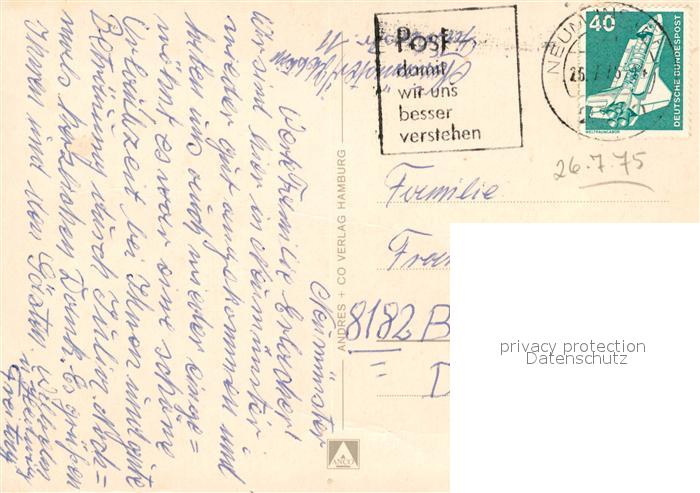 Neumünster
Werte Familie
Wir sind hier in Neumünster
wieder gut angekommen und
habe uns auch wieder einge=
wöhnt. Es war eine schöne
Urlaubszeit bei Ihnen und gute
Betreuung durch Ihnen. Noch=
mals herzlichen Dank. Es grüßen
Ihnen und den Gästen. Wilhelm
u. Hedwig
Freitag
ANDRES + CO VERLAG HAMBURG
ANCO
Neumünster
11
Post
damit
wir uns
besser
verstehen
NEUMÜN
40
DEUTSCHE BUNDESPOST
WELTRAUMLABOR
26.7.75
Familie
Fra
8182 B
privacy protection
Datenschutz